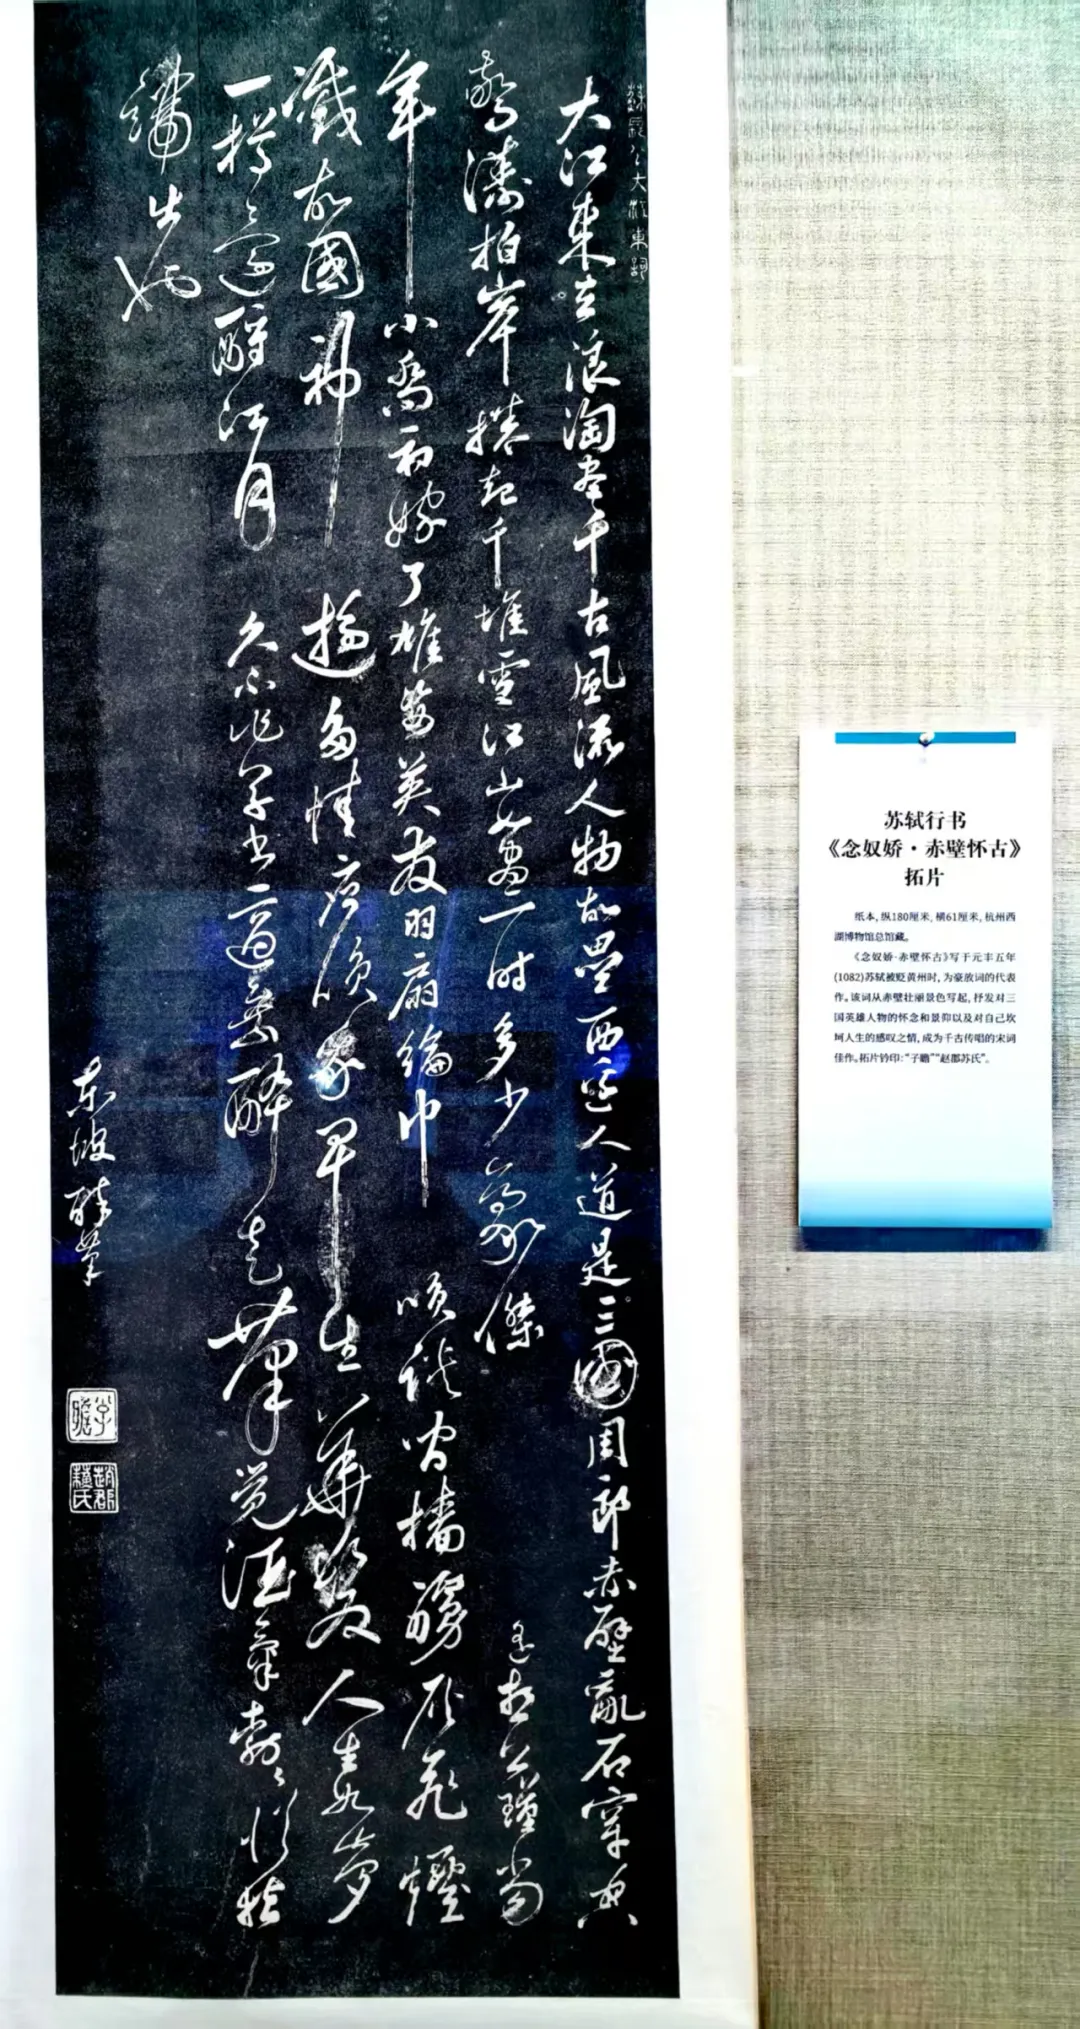 蘇長公大江東詞
大江東去浪淘盡千古風流人物故壘西邊人道是三國周郎赤壁亂石穿空
驚濤拍岸捲起千堆雪江山如畫一時多少豪傑 遙想公瑾當
年小喬初嫁了雄姿英發羽扇綸巾 咲談間檣艣灰飛煙
滅故國神遊多情應咲我早生華髮人生如夢
一樽還酹江月 久不作草書適乘醉走筆覺酒氣勃勃似指
端出也
東坡醉筆
子瞻
趙郡蘇氏
苏轼行书
《念奴娇·赤壁怀古》
拓片
纸本,纵180厘米,横61厘米,杭州西
湖博物馆总馆藏。
《念奴娇·赤壁怀古》写于元丰五年
(1082)苏轼被贬黄州时,为豪放词的代表
作。该词从赤壁壮丽景色写起,抒发对三
国英雄人物的怀念和景仰以及对自己坎
坷人生的感叹之情,成为千古传唱的宋词
佳作。拓片钤印:“子瞻”“赵郡苏氏”。